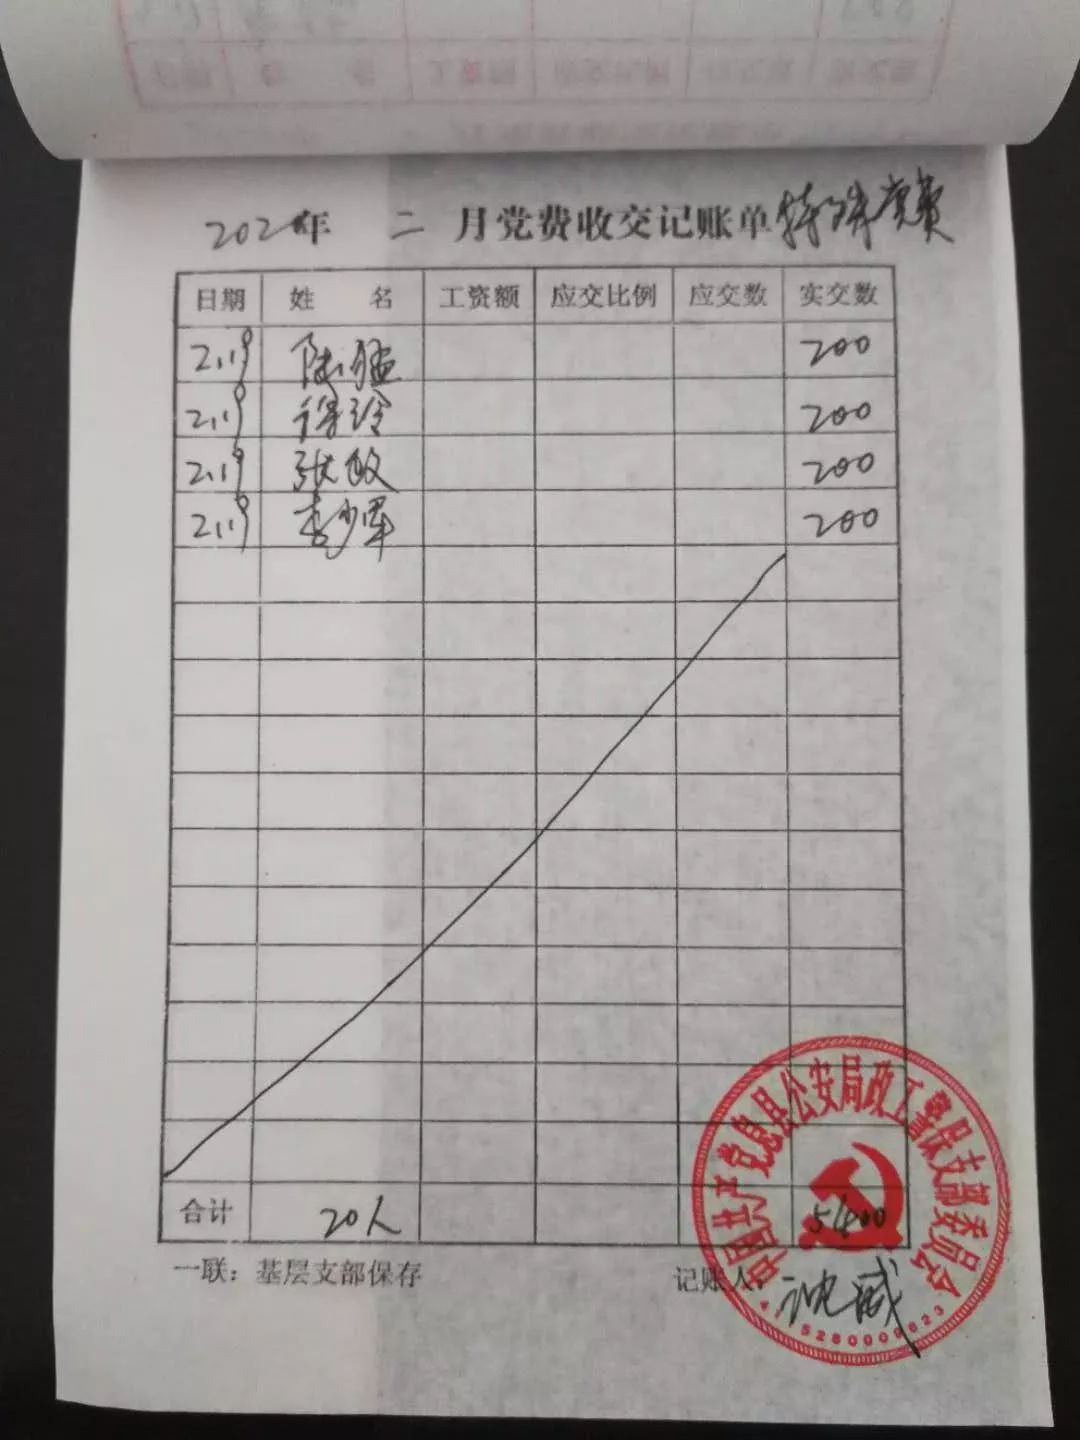 202 年 二 月党费收交记账单 特殊党费
日期 姓 名 工资额 应交比例 应交数 实交数
2.19 陆猛 200
2.19 徐玲 200
2.19 张敏 200
2.19 李少军 200
合计 20人 5400
一联：基层支部保存 记账人：沈威
中国共产党息县公安局政工警保支部委员会